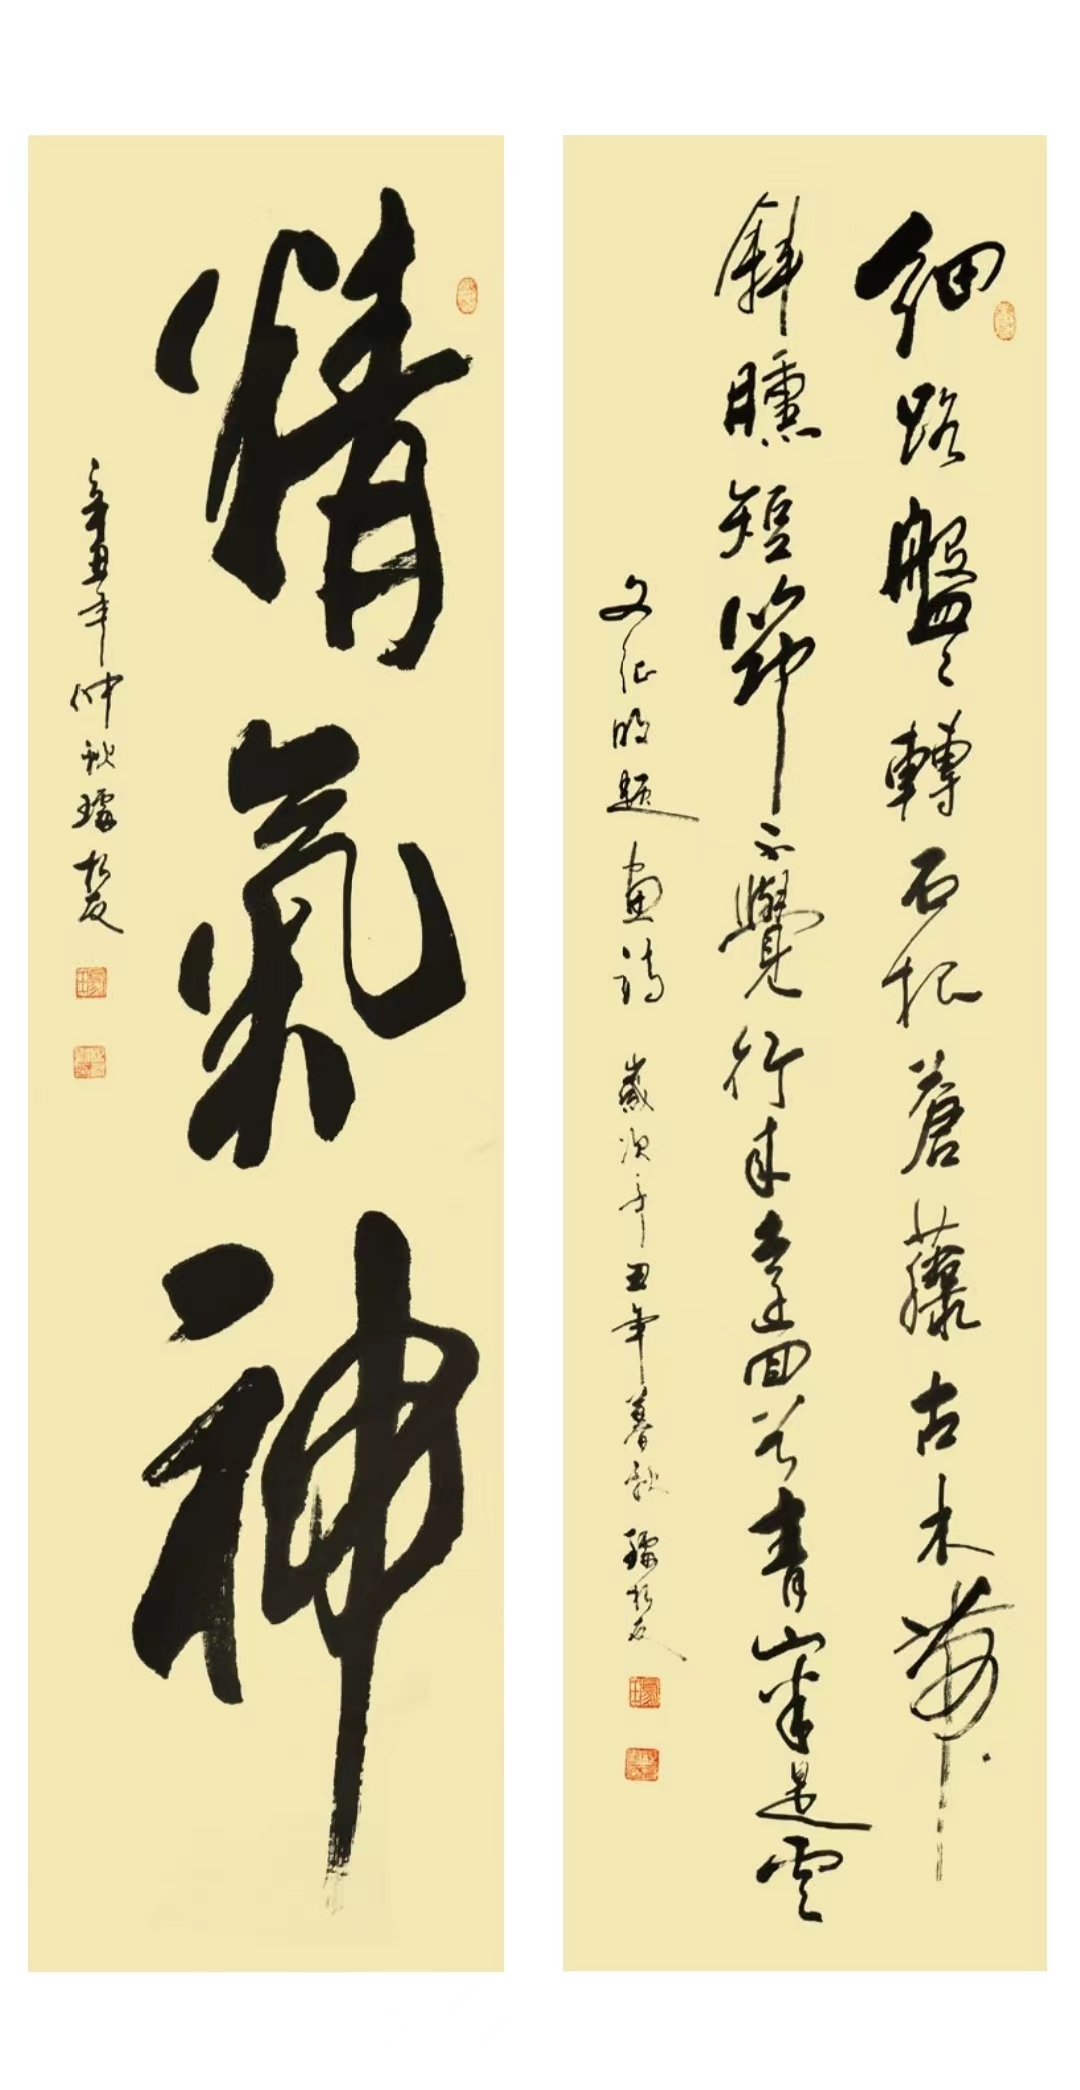 細路盤々轉石根蒼藤古木帶
斜曛短筇不覺行來遠回首青山半是雲
文征明題畫詩 歲次辛丑年暮秋
精氣神
辛丑年仲秋